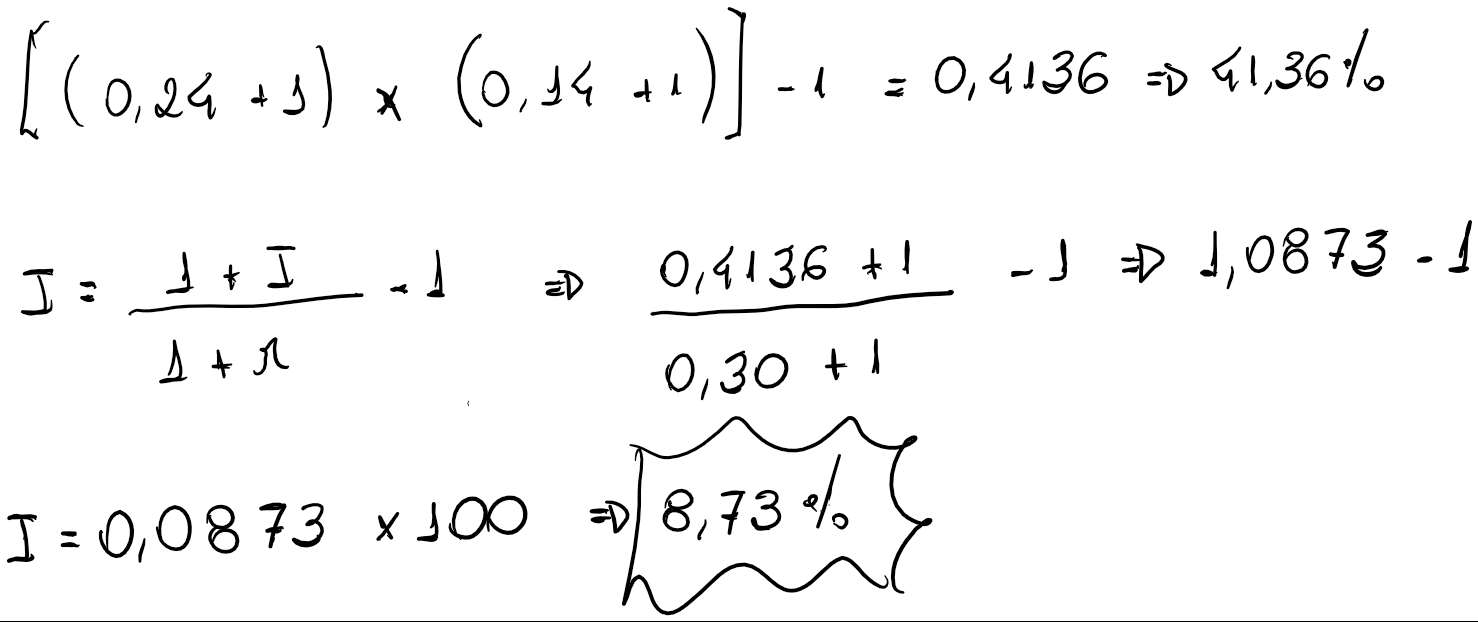 [(0,24 + 1) x (0,14 + 1)] - 1 = 0,4136 => 41,36%
I = (1 + I)/(1 + r) - 1 => (0,4136 + 1)/(0,30 + 1) - 1 => 1,0873 - 1
I = 0,0873 x 100 => 8,73%